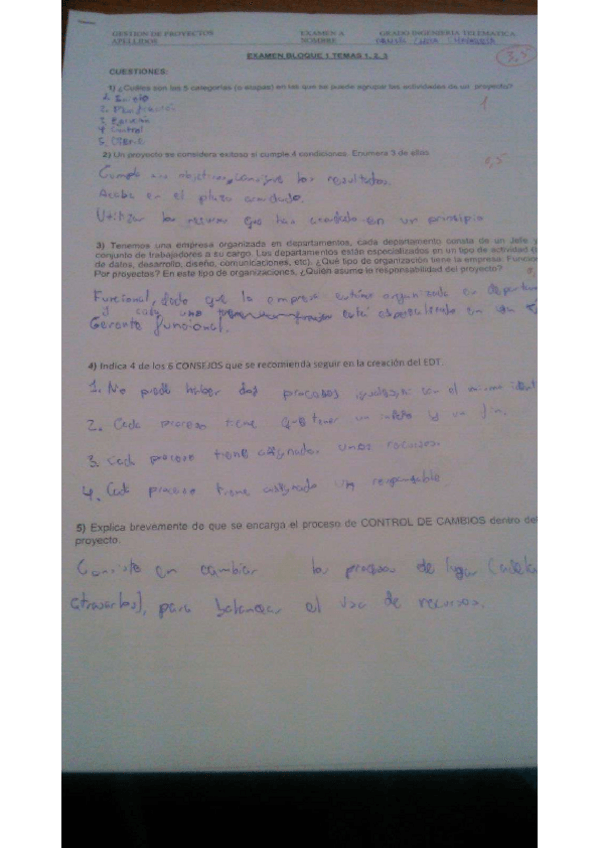 GESTION DE PROYECTOS EXAMEN A GRADO INGENIERIA TELEMATICA
APELLIDOS NOMBRE
EXAMEN BLOQUE I TEMAS 1, 2, 3
CUESTIONES:
1) ¿Cuáles son las 5 categorías (o etapas) en las que se puede agrupar las actividades de un proyecto?
1. Inicio
1
2. Planificación
3. Ejecución
4. Control
5. Cierre
2) Un proyecto se considera exitoso si cumple 4 condiciones. Enumera 3 de ellas.
0,5
Cumple los objetivos, consigue los resultados.
Acaba en el plazo acordado.
Utilizar los recursos que has acordado en un principio
3) Tenemos una empresa organizado en departamentos, cada departamento consta de un Jefe y
conjunto de trabajadores a su cargo. Los departamentos están especializados en un tipo de actividad
de datos, desarrollo, diseño, comunicaciones, etc). ¿Qué tipo de organización tiene la empresa. Funcio
Por proyectos? En este tipo de organizaciones, ¿Quién asume la responsabilidad del proyecto?
Funcional, dado que la empresa organizada en departam
y cada una está especializada en un
Gerente funcional.
4) Indica 4 de los 6 CONSEJOS que se recomienda seguir en la creación del EDT.
1. No puede haber dos procesos con el mismo ident
2. Cada proceso tiene que tener un inicio y un fin.
3. Cada proceso tiene asignados unos recursos.
4. Cada proceso tiene asignado un responsable.
5) Explica brevemente de que se encarga el proceso de CONTROL DE CAMBIOS dentro del
proyecto.
Consiste en cambiar los procesos de lugar (adela
atrasarlos), para balancear el uso de recursos.